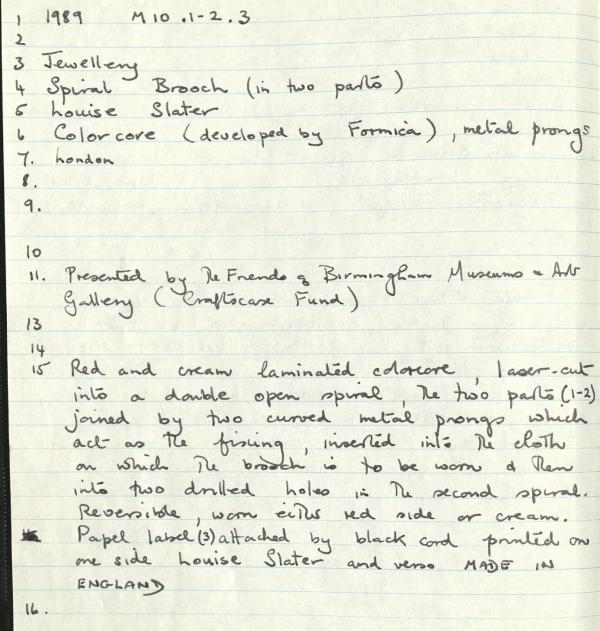 1 1989 M10.1-2.3
2
3 Jewellery
4 Spiral Brooch (in two parts)
5 Louise Slater
6 Colorcore (developed by Formica), metal prongs
7. London
8.
9.
10
11. Presented by the Friends of Birmingham Museums & Art
Gallery (Craftscase Fund)
13
14
15 Red and cream laminated colorcore, laser-cut
into a double open spiral, the two parts (1-2)
joined by two curved metal prongs which
act as the fixing, inserted into the cloth
on which the brooch is to be worn & then
into two drilled holes in the second spiral.
Reversible, worn either red side or cream.
Papel label (3) attached by black cord printed on
one side Louise Slater and verso MADE IN
ENGLAND
16.